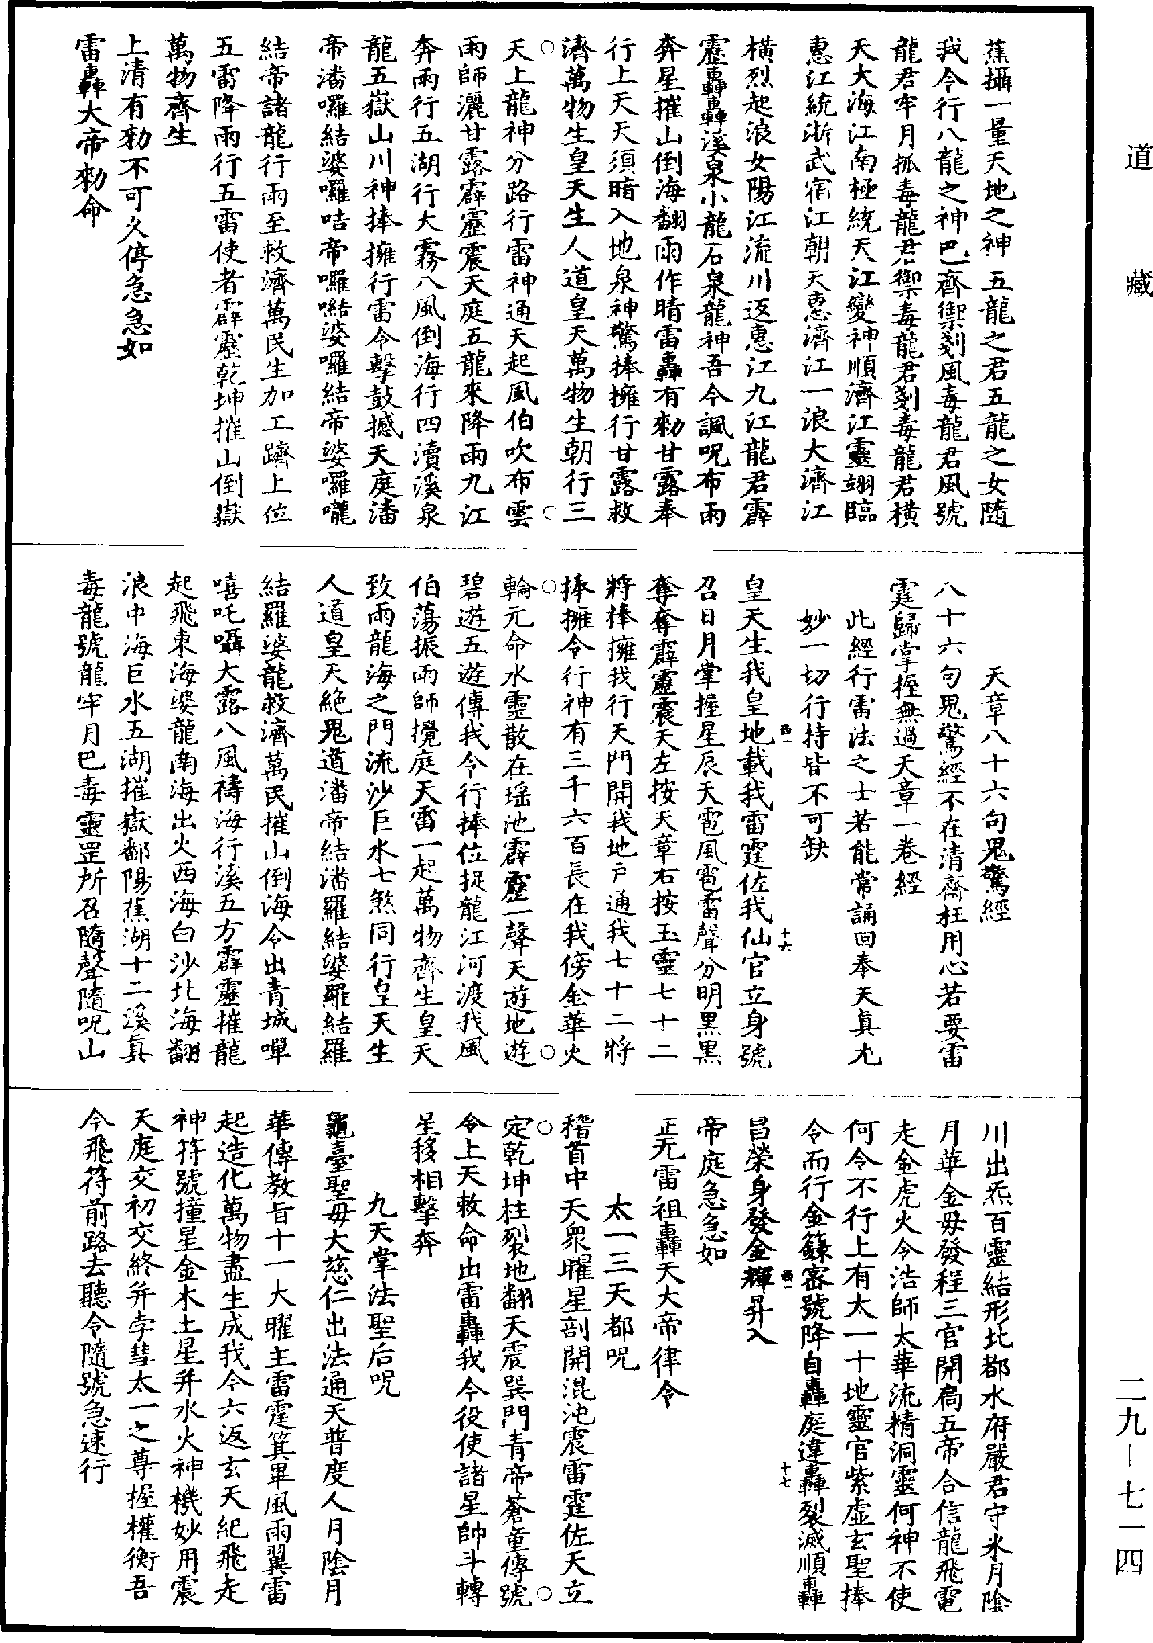 道藏
蕉攝一量天地之神五龍之君五龍之女隨
我今行八龍之神巴齊禦剡風毒龍君風號
龍君牢月抓毒龍君禦毒龍君剡毒龍君橫
天大海江南極統天江變神順濟江靈翊臨
惠江統浙武宿江朝天惠濟江一浪大濟江
橫烈起浪女陽江流川返惠江九江龍君霹
靂轟轟溪泉小龍石泉龍神吾今諷呪布雨
奔星摧山倒海翻雨作晴雷轟有勑甘露奉
行上天天須暗入地泉神驚捧擁行甘露救
濟萬物生皇天生人道皇天萬物生朝行三
天上龍神分路行雷神通天起風伯吹布雲
雨師灑甘露霹靂震天庭五龍來降雨九江
奔雨行五湖行大霧八風倒海行四瀆溪泉
龍五嶽山川神捧擁行雷令擊鼓撼天庭潘
帝潘囉結婆囉咭帝囉喈婆囉結帝婆囉囖
結帝諸龍行雨至救濟萬民生加工躋上位
五雷降雨行五雷使者霹靂乾坤摧山倒嶽
萬物齊生
上清有勑不可久停急急如
雷轟大帝勑命
天章八十六句鬼驚經
八十六句鬼驚經不在清齋枉用心若要雷
霆歸掌握無過天章一卷經
此經行雷法之士若能常誦回奉天真尤
妙一切行持皆不可缺
皇天生我皇地載我雷霆佐我仙官立身號
召日月掌握星辰天雹風雹雷聲分明黑黑
奪奪霹靂震天左按天章右按玉靈七十二
將捧擁我行天門開我地戶通我七十二將
捧擁令行神有三千六百長在我傍金華火
輪元命水靈散在瑤池霹靂一聲天遊地遊
碧遊五遊傳我令行捧位捉龍江河渡我風
伯蕩振雨師攪庭天雷一起萬物齊生皇天
致雨龍海之門流沙巨水七煞同行皇天生
人道皇天絕鬼道潘帝結潘羅結婆羅結羅
結羅婆龍救濟萬民摧山倒海令出青城嘽
嘻吒囁大露八風禱海行溪五方霹靂摧龍
起飛東海婆龍南海出火西海白沙北海翻
浪中海巨水五湖摧嶽鄱陽蕉湖十二溪真
毒龍號龍牢月巴毒靈罡所召隨聲隨呪山
川出炁百靈結形北都水府嚴君守氷月陰
月華金毋發程三官開扃五帝合信龍飛電
走金虎火令浩師太華流精洞靈何神不使
何令不行上有太一十地靈官紫虛玄聖捧
令而行金籙密號降自轟庭違轟裂滅順轟
昌榮身發金輝昇入
帝庭急急如
正元雷祖轟天大帝律令
太一三天都呪
稽首中天衆曜星剖開混沌震雷霆佐天立
定乾坤柱裂地翻天震巽門青帝蒼童傳號
令上天救命出雷轟我今役使諸星帥斗轉
星移相擊奔
九天掌法聖后呪
龜臺聖毋大慈仁出法通天普度人月陰月
華傳教旨十一大曜主雷霆箕畢風雨翼雷
起造化萬物盡生成我今六返玄天紀飛走
神符號撞星金木土星并水火神機妙用震
天庭交初交終并孛彗太一之尊握權衡吾
今飛符前路去聽令隨號急速行
二九—七一四